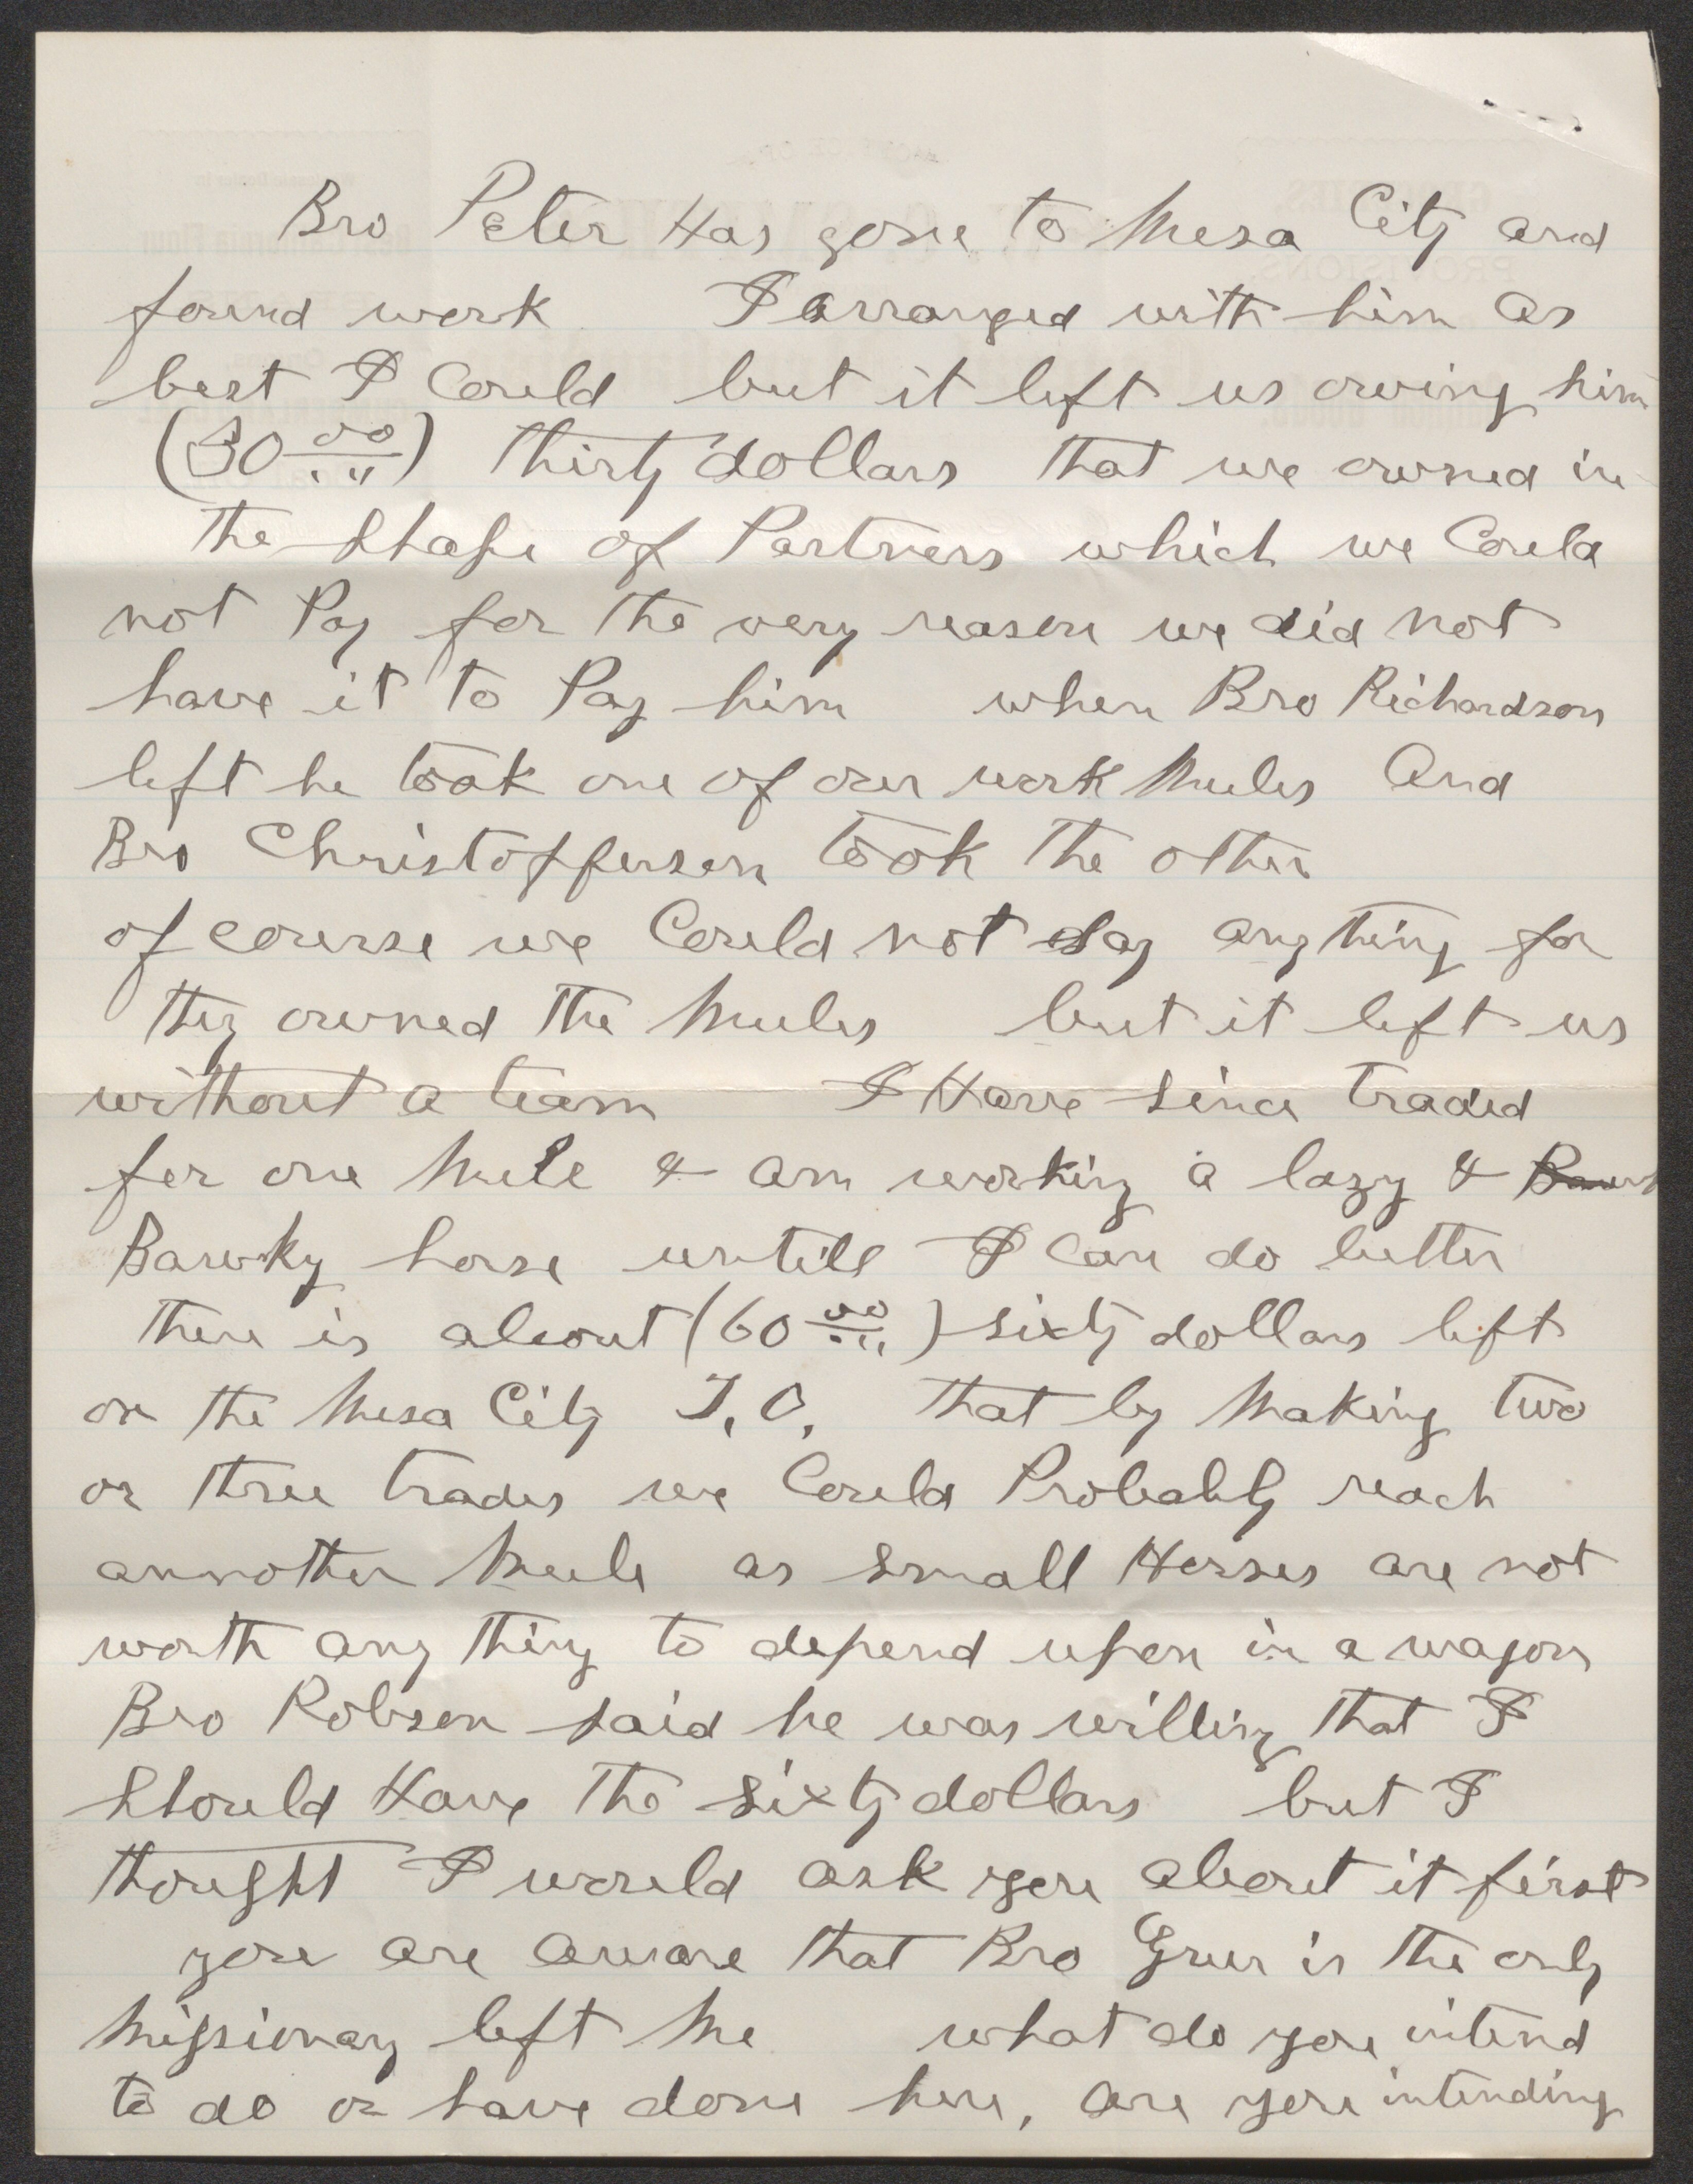 Bro Peter Has gone to Mesa City and
found work I arranged with him as
best I Could but it left us owing him
(30 00) Thirty dollars that we owned in
the shape of Partners which we Could
not Pay for the very reason we did not
have it to Pay him when Bro Richardson
left he took one of our work Mules And
Bro Christofferson took the other
of course we Could not say any thing for
they owned the Mules but it left us
without a team I Have since traded
for one Mule & am working a lazy &
Bawky horse untill I can do better
there is about (60 00) sixty dollars left
on the Mesa City T, O, that by Making two
or three trades we Could Probably reach
annother Mule as small Horses are not
worth any thing to depend upon in a wagon
Bro Robson said he was willing that I
Should Have the sixty dollars but I
thought I would ask you about it first
you are aware that Bro Greer is the only
Missionary left Me what do you intend
to do or have done here, are you intending